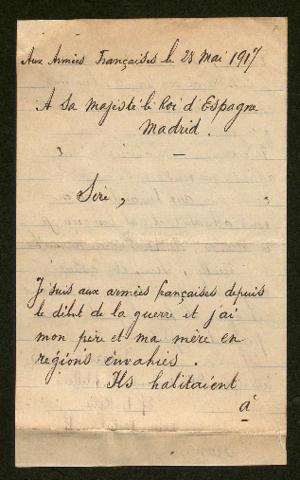 Aux Armées Françaises le 28 Mai 1917
A sa majesté le Roi d'Espagne
Madrid.
Sire,
Je suis aux armées françaises depuis
le début de la guerre et j'ai
mon père et ma mère en
regions envahies.
Ils habitaient
à